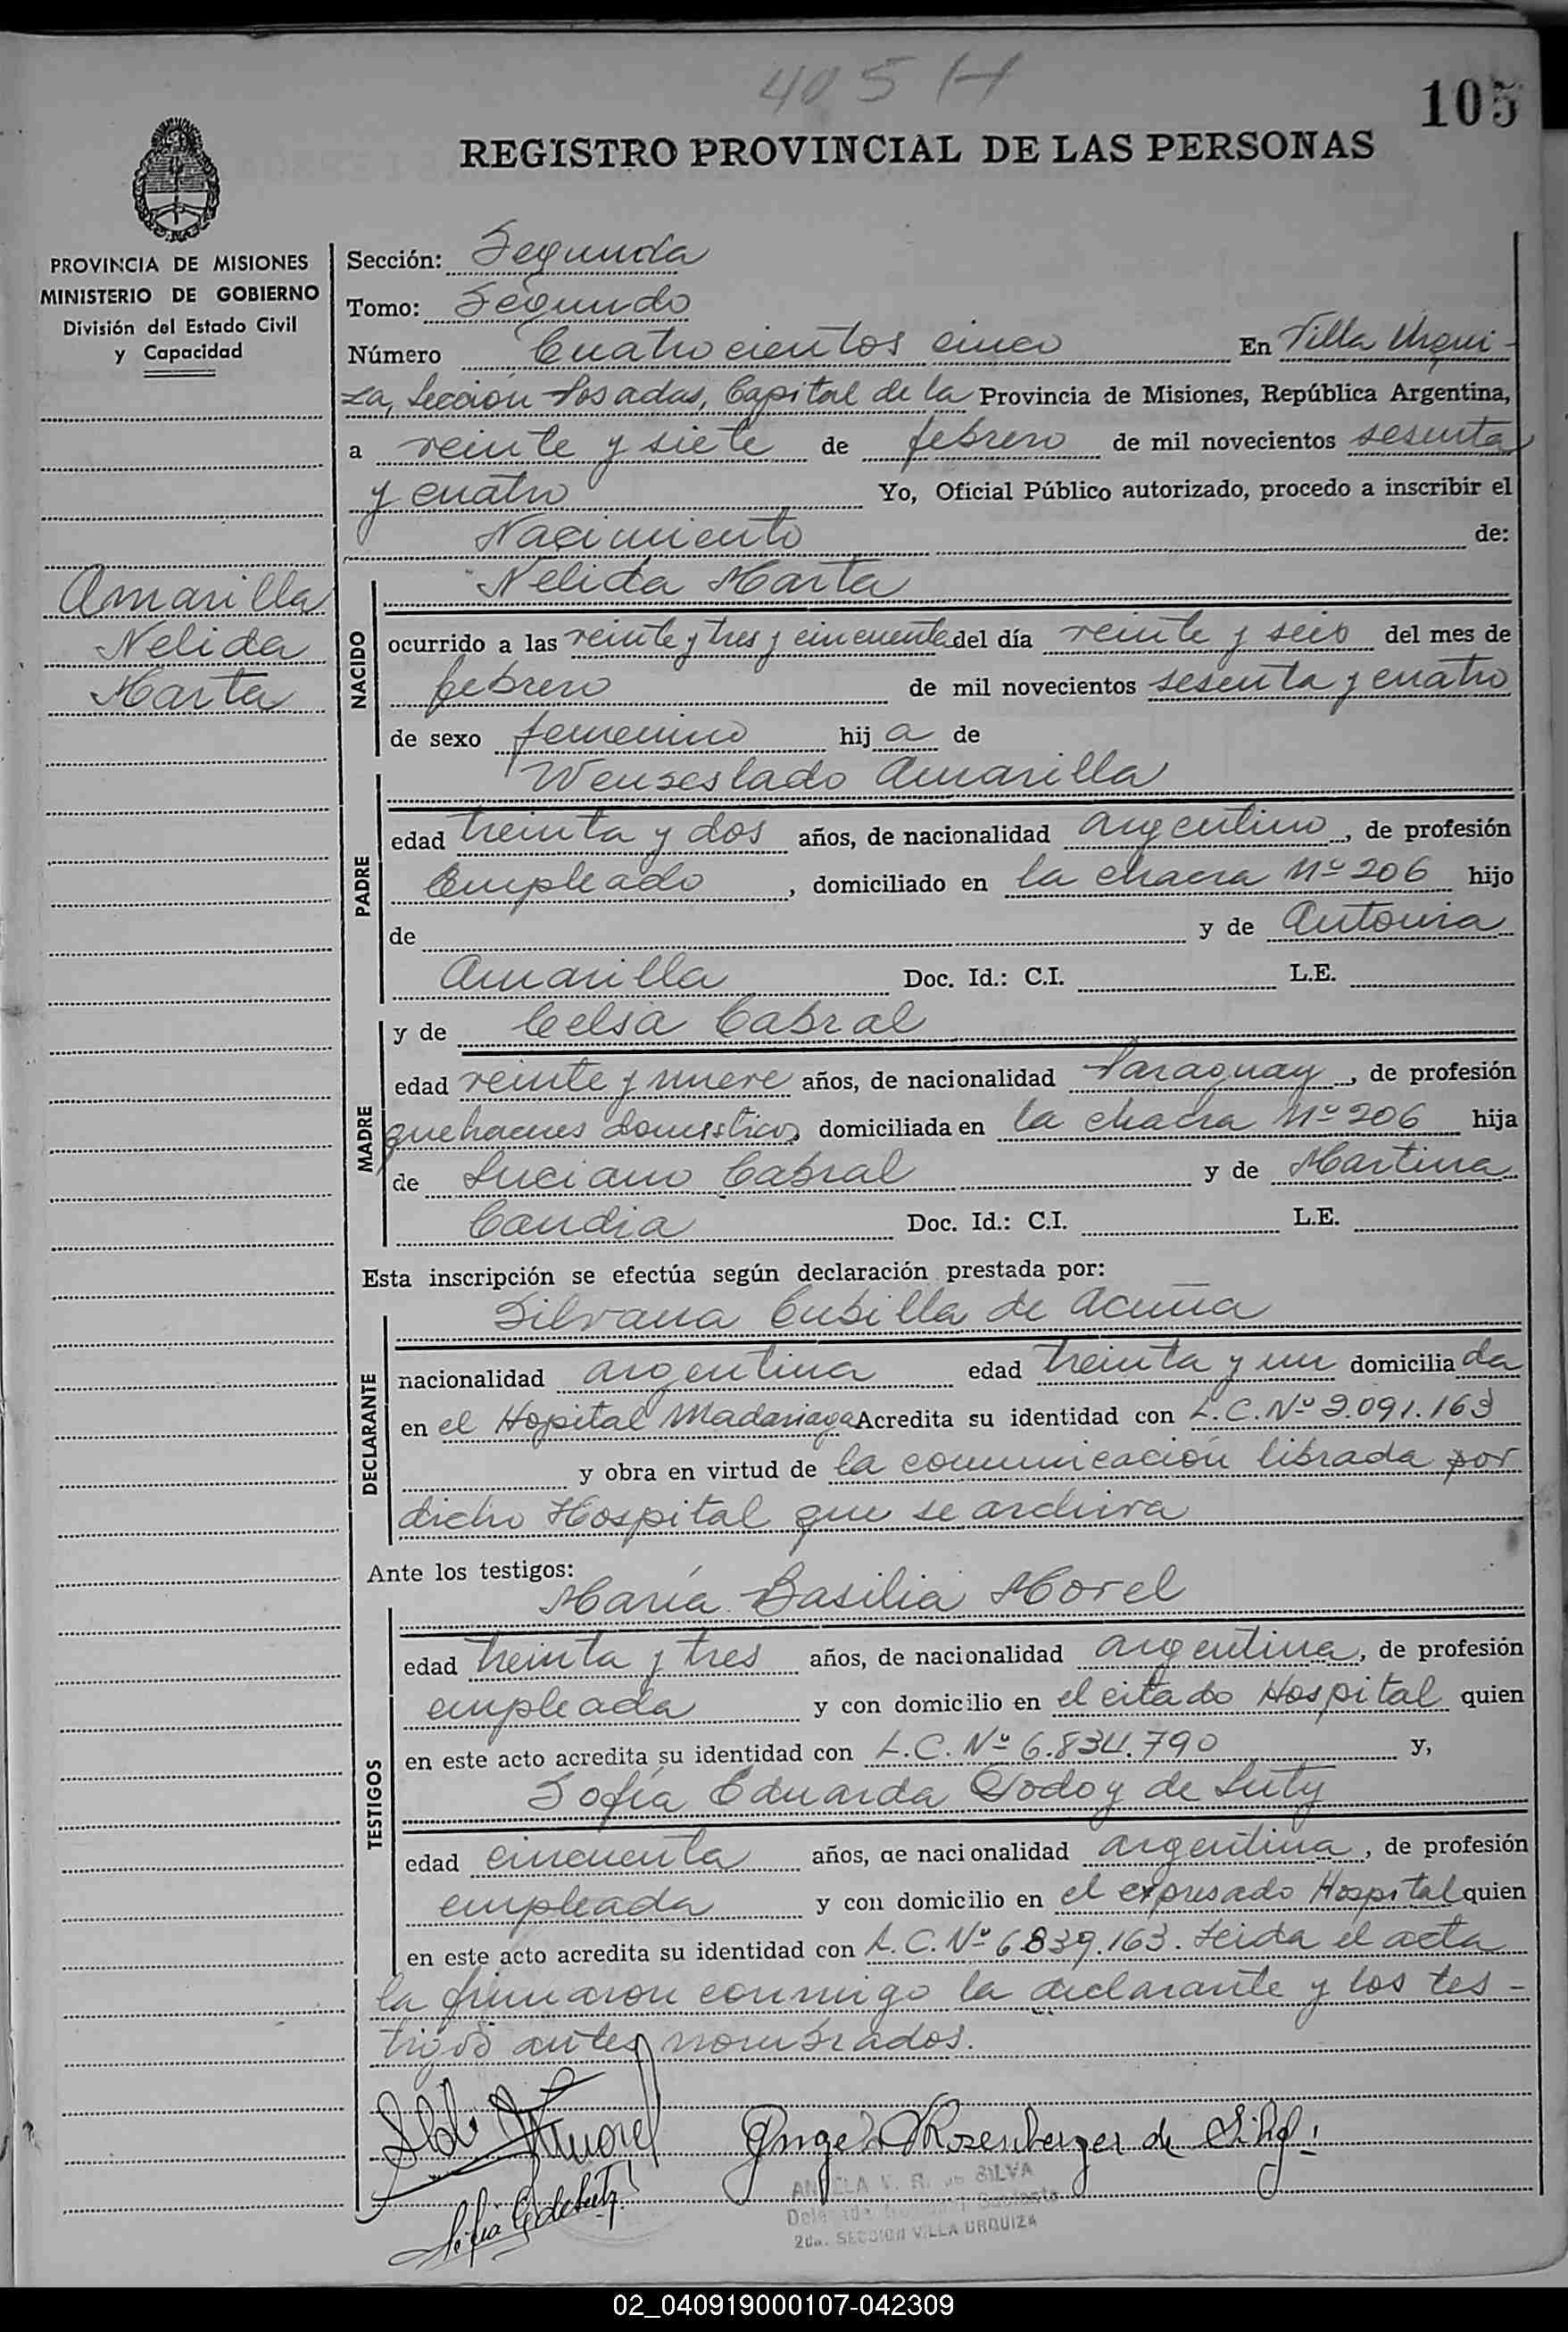 405 H
105
REGISTRO PROVINCIAL DE LAS PERSONAS
PROVINCIA DE MISIONES
MINISTERIO DE GOBIERNO
División del Estado Civil
y Capacidad
Amarilla
Nelida
Marta
Sección: Segunda
Tomo: Segundo
Número Cuatrocientos cinco En Villa Urqui-
za, Sección Posadas, Capital de la Provincia de Misiones, República Argentina,
a veinte y siete de febrero de mil novecientos sesenta
y cuatro Yo, Oficial Público autorizado, procedo a inscribir el
Nacimiento de:
NACIDO
Nelida Marta
ocurrido a las veinte y tres y cincuenta del día veinte y seis del mes de
febrero de mil novecientos sesenta y cuatro
de sexo femenino hij a de
PADRE
Wenseslado Amarilla
edad treinta y dos años, de nacionalidad argentino, de profesión
Empleado, domiciliado en la chacra Nº 206 hijo
de y de Antonia
Amarilla Doc. Id.: C.I. L.E.
MADRE
y de Celsa Cabral
edad veinte y nueve años, de nacionalidad Paraguay, de profesión
quehaceres domesticos domiciliada en la chacra Nº 206 hija
de Luciano Cabral y de Martina
Candia Doc. Id.: C.I. L.E.
Esta inscripción se efectúa según declaración prestada por:
DECLARANTE
Silvana Cubilla de Acuña
nacionalidad argentina edad treinta y un domicilia da
en el Hopital Madariaga Acredita su identidad con L.C. Nº 9.091.163
y obra en virtud de la comunicación librada por
dicho Hospital que se archiva
Ante los testigos:
TESTIGOS
María Basilia Morel
edad treinta y tres años, de nacionalidad argentina, de profesión
empleada y con domicilio en el citado Hospital quien
en este acto acredita su identidad con L.C. Nº 6.834.790 y,
Sofía Eduarda Godoy de Luty
edad cincuenta años, de nacionalidad argentina, de profesión
empleada y con domicilio en el expresado Hospital quien
en este acto acredita su identidad con L.C. Nº 6839.163. Leida el acta
la firmaron conmigo la declarante y los tes-
tigos antes nombrados.
Angela Rosenberger de Silva
Sofia G de Luty
ANGELA V. R. de SILVA
2da. SECCION VILLA URQUIZA
02_040919000107-042309